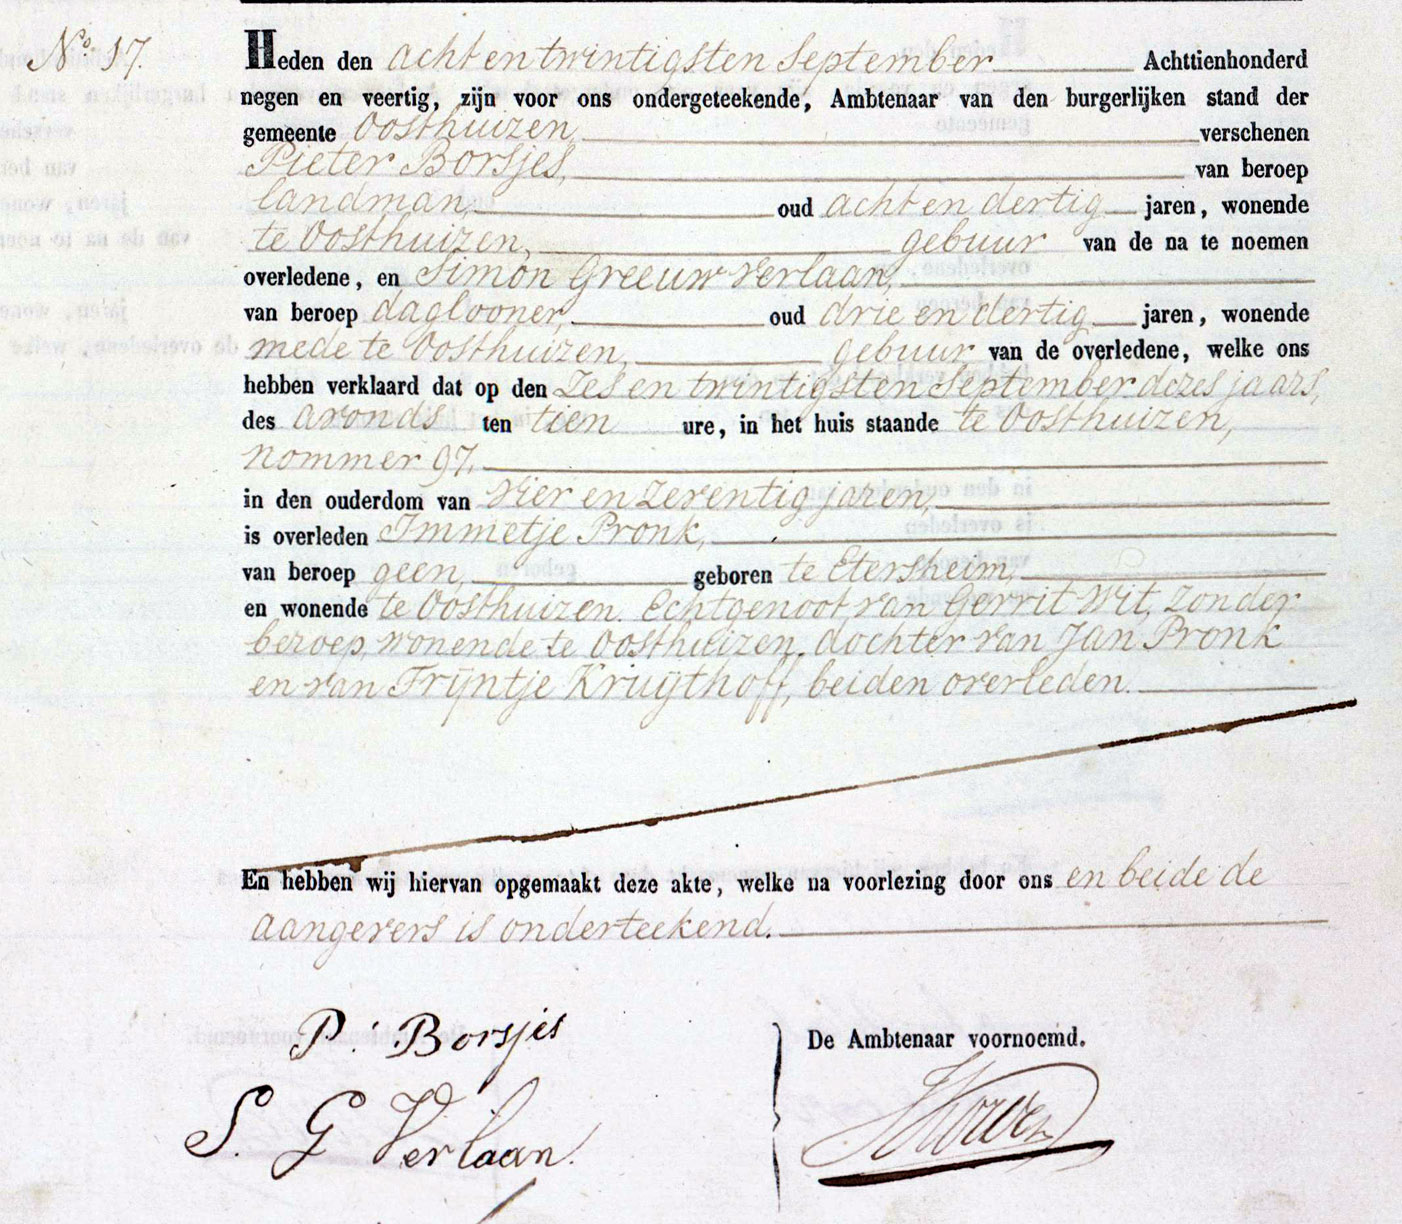 No. 17.
Heden den acht en twintigsten September Achttienhonderd
negen en veertig, zijn voor ons ondergeteekende, Ambtenaar van den burgerlijken stand der
gemeente Oosthuizen, verschenen
Pieter Borsjes, van beroep
landman, oud acht en dertig jaren, wonende
te Oosthuizen, gebuur van de na te noemen
overledene, en Simon Greeuw Verlaan,
van beroep daglooner, oud drie en dertig jaren, wonende
mede te Oosthuizen, gebuur van de overledene, welke ons
hebben verklaard dat op den Zes en twintigsten September dezes jaars,
des avonds ten tien ure, in het huis staande te Oosthuizen,
nommer 97,
in den ouderdom van vier en zeventig jaren,
is overleden Immetje Pronk,
van beroep geen, geboren te Etersheim,
en wonende te Oosthuizen. Echtgenoot van Gerrit Wit, zonder
beroep, wonende te Oosthuizen, dochter van Jan Pronk
en van Trijntje Kruijthoff, beiden overleden.
En hebben wij hiervan opgemaakt deze akte, welke na voorlezing door ons en beide de
aangevers is onderteekend.
P. Borsjes
De Ambtenaar voornoemd.
S. G Verlaan.